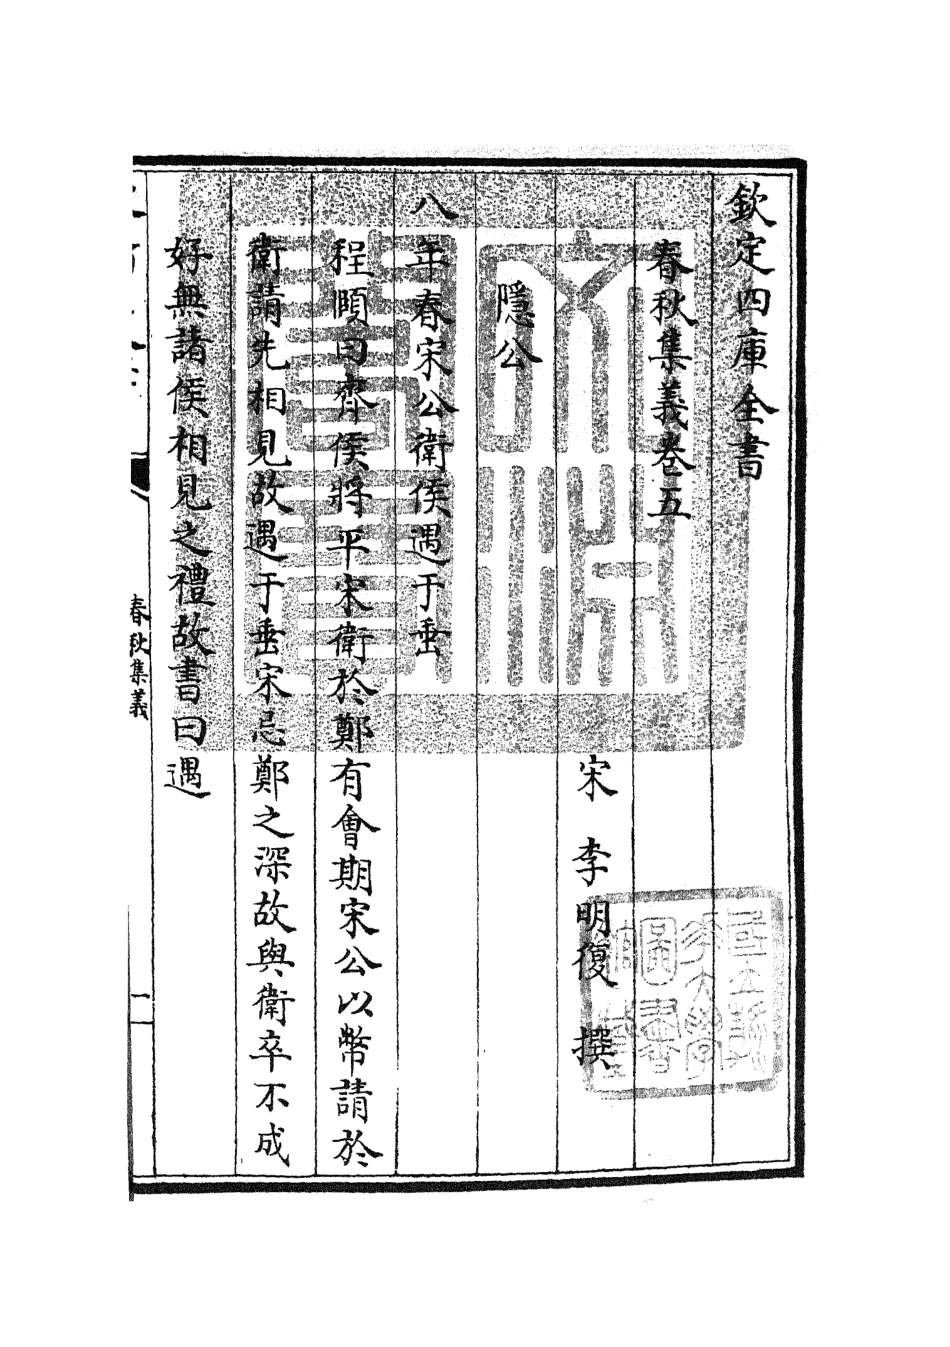 欽定四庫全書
春秋集義卷五
宋 李明復 撰
隱公
八年春宋公衛侯遇于垂
程頤曰齊侯將平宋衛於鄭有會期宋公以幣請於
衛請先相見故遇于垂宋忌鄭之深故與衛卒不成
好無諸侯相見之禮故書曰遇
春秋集義
一